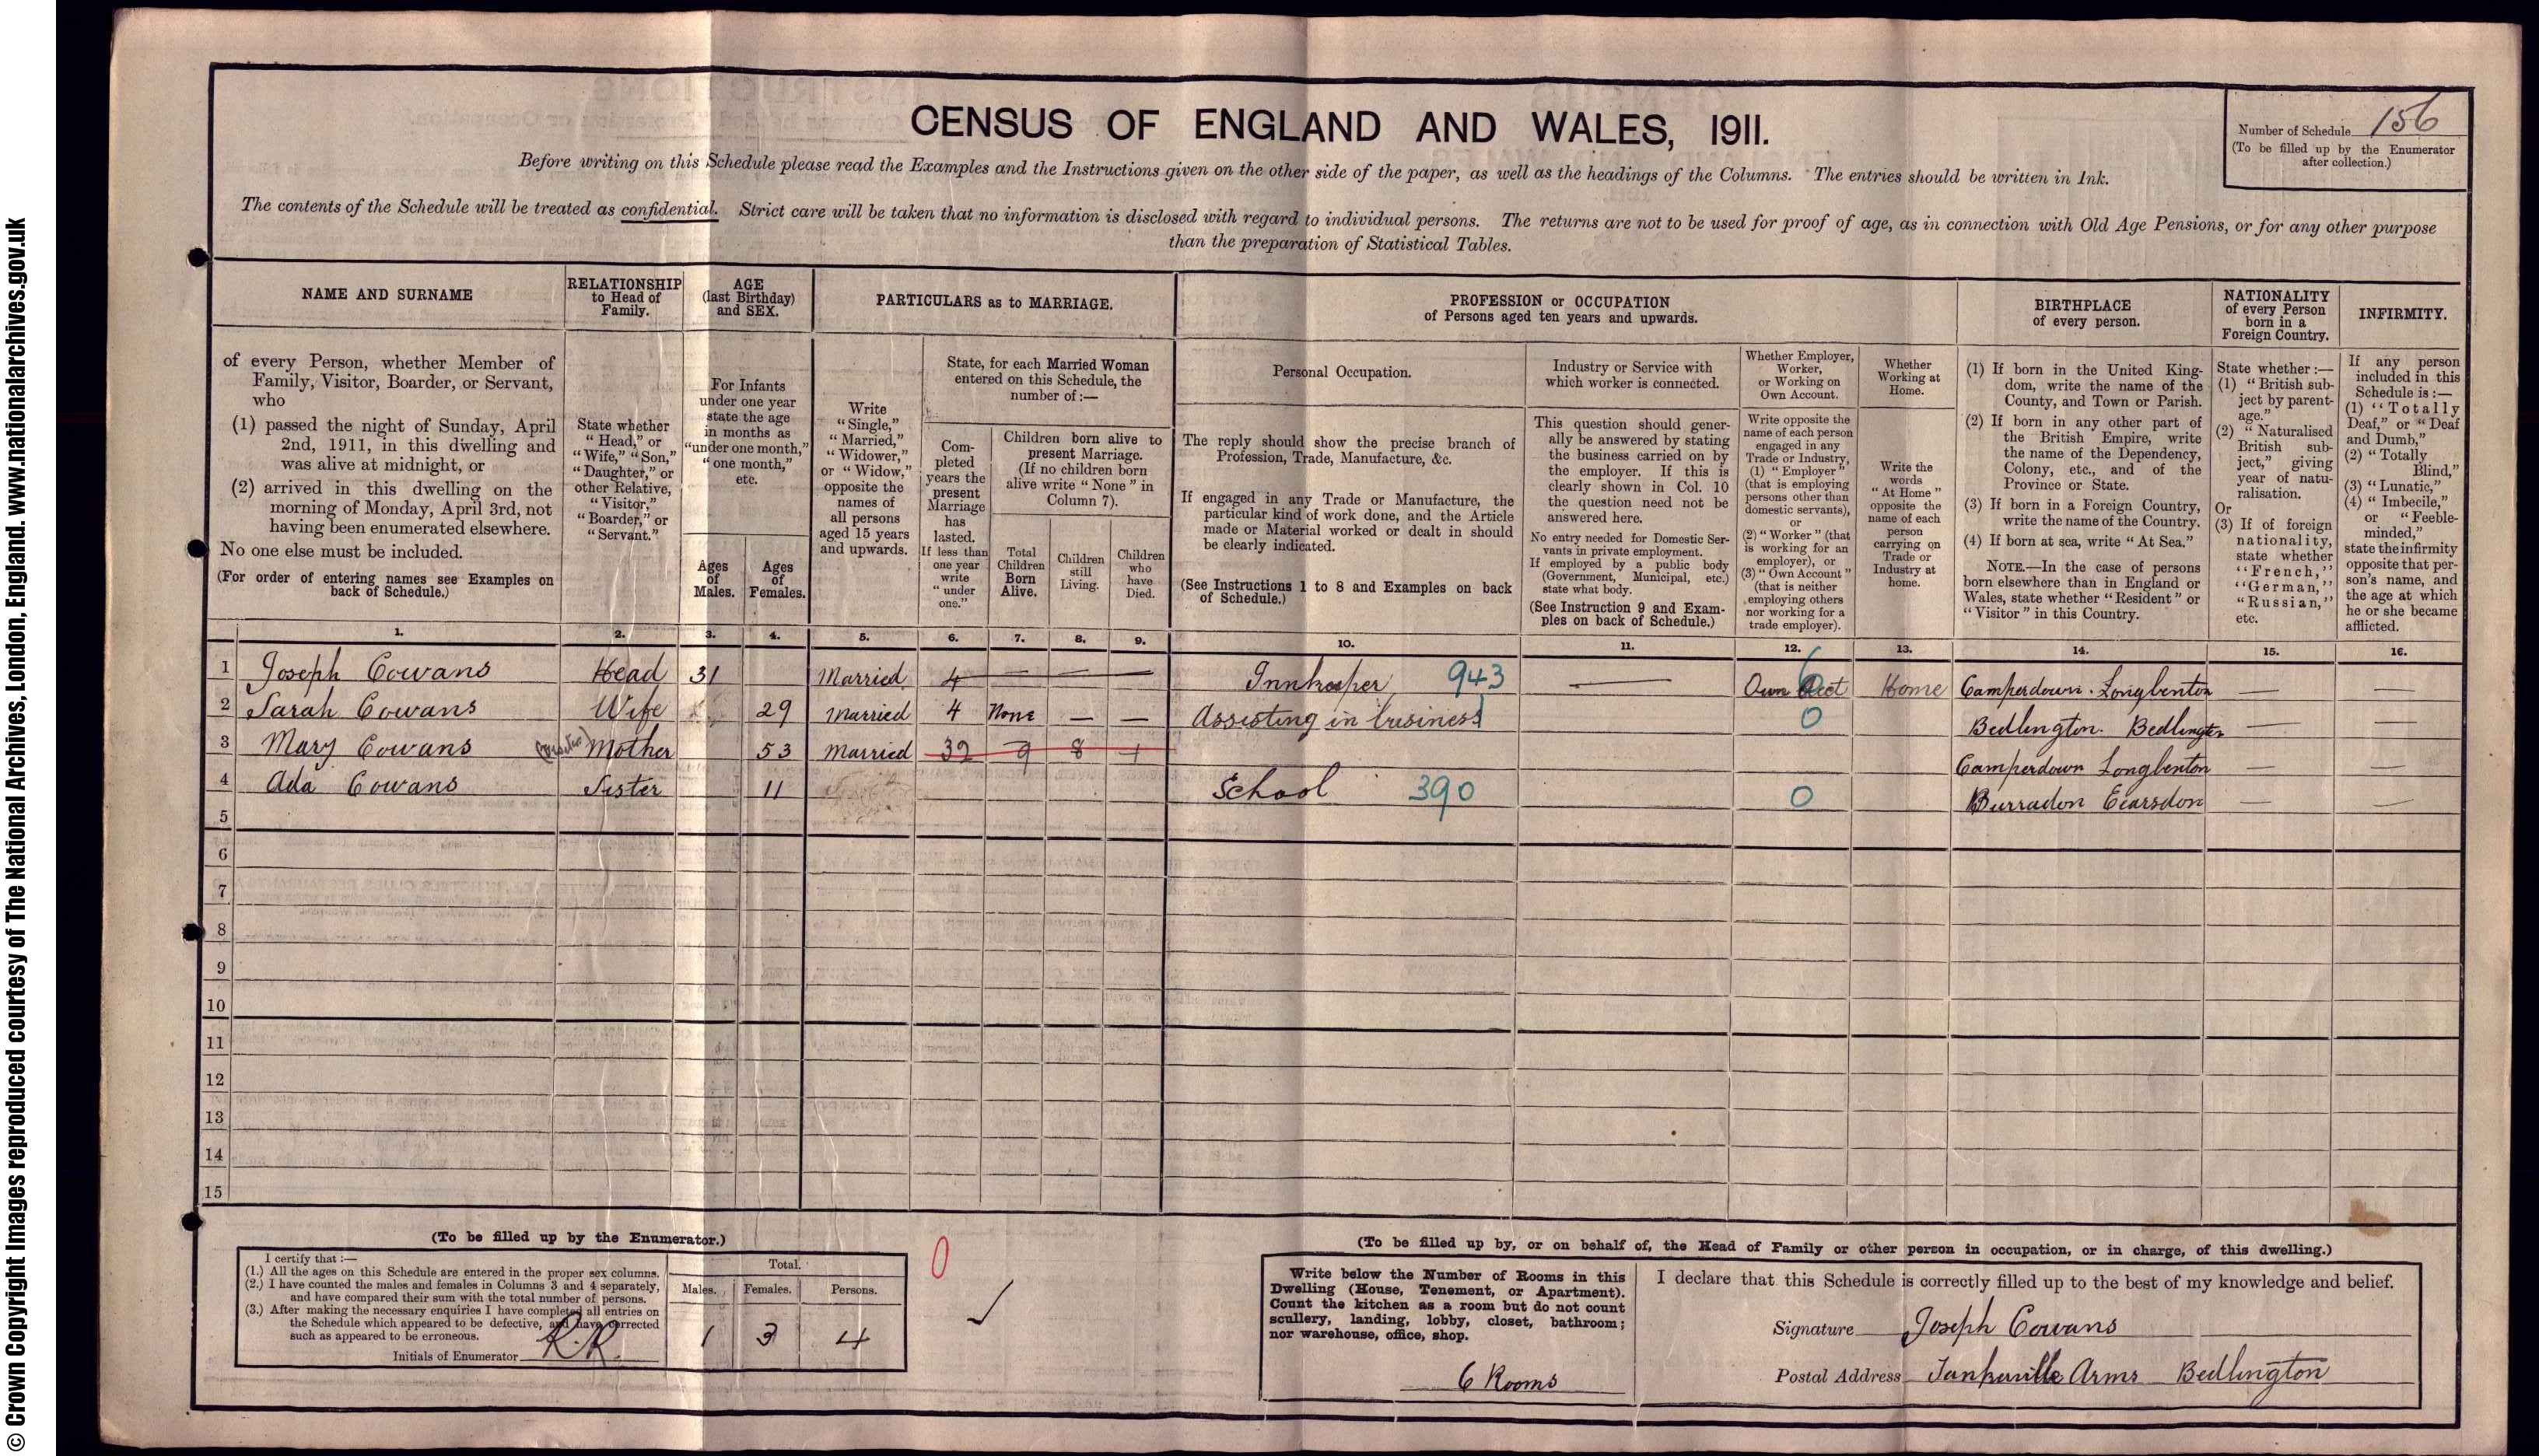 © Crown Copyright Images reproduced courtesy of The National Archives, London, England. www.nationalarchives.gov.uk
CENSUS OF ENGLAND AND WALES, 1911.
Number of Schedule 156
(To be filled up by the Enumerator
after collection.)
Before writing on this Schedule please read the Examples and the Instructions given on the other side of the paper, as well as the headings of the Columns. The entries should be written in Ink.
The contents of the Schedule will be treated as confidential. Strict care will be taken that no information is disclosed with regard to individual persons. The returns are not to be used for proof of age, as in connection with Old Age Pensions, or for any other purpose
than the preparation of Statistical Tables.
NAME AND SURNAME
of every Person, whether Member of
Family, Visitor, Boarder, or Servant,
who
(1) passed the night of Sunday, April
2nd, 1911, in this dwelling and
was alive at midnight, or
(2) arrived in this dwelling on the
morning of Monday, April 3rd, not
having been enumerated elsewhere.
No one else must be included.
(For order of entering names see Examples on
back of Schedule.)
RELATIONSHIP
to Head of
Family.
State whether
"Head," or
"Wife," "Son,"
"Daughter," or
other Relative,
"Visitor,"
"Boarder," or
"Servant."
AGE
(last Birthday)
and SEX.
For Infants
under one year
state the age
in months as
"under one month,"
"one month,"
etc.
Ages
of
Males.
Ages
of
Females.
PARTICULARS as to MARRIAGE.
Write
"Single,"
"Married,"
"Widower,"
or "Widow,"
opposite the
names of
all persons
aged 15 years
and upwards.
State, for each Married Woman
entered on this Schedule, the
number of:—
Com-
pleted
years the
present
Marriage
has
lasted.
If less than
one year
write
"under
one."
Children born alive to
present Marriage.
(If no children born
alive write "None" in
Column 7).
Total
Children
Born
Alive.
Children
still
Living.
Children
who
have
Died.
PROFESSION or OCCUPATION
of Persons aged ten years and upwards.
Personal Occupation.
The reply should show the precise branch of
Profession, Trade, Manufacture, &c.
If engaged in any Trade or Manufacture, the
particular kind of work done, and the Article
made or Material worked or dealt in should
be clearly indicated.
(See Instructions 1 to 8 and Examples on back
of Schedule.)
Industry or Service with
which worker is connected.
This question should gener-
ally be answered by stating
the business carried on by
the employer. If this is
clearly shown in Col. 10
the question need not be
answered here.
No entry needed for Domestic Ser-
vants in private employment.
If employed by a public body
(Government, Municipal, etc.)
state what body.
(See Instruction 9 and Exam-
ples on back of Schedule.)
Whether Employer,
Worker,
or Working on
Own Account.
Write opposite the
name of each person
engaged in any
Trade or Industry,
(1) "Employer"
(that is employing
persons other than
domestic servants),
or
(2) "Worker" (that
is working for an
employer), or
(3) "Own Account"
(that is neither
employing others
nor working for a
trade employer).
Whether
Working at
Home.
Write the
words
"At Home"
opposite the
name of each
person
carrying on
Trade or
Industry at
home.
BIRTHPLACE
of every person.
(1) If born in the United King-
dom, write the name of the
County, and Town or Parish.
(2) If born in any other part of
the British Empire, write
the name of the Dependency,
Colony, etc., and of the
Province or State.
(3) If born in a Foreign Country,
write the name of the Country.
(4) If born at sea, write "At Sea."
NOTE.—In the case of persons
born elsewhere than in England or
Wales, state whether "Resident" or
"Visitor" in this Country.
NATIONALITY
of every Person
born in a
Foreign Country.
State whether:—
(1) "British sub-
ject by parent-
age."
(2) "Naturalised
British sub-
ject," giving
year of natu-
ralisation.
Or
(3) If of foreign
nationality,
state whether
"French,"
"German,"
"Russian,"
etc.
INFIRMITY.
If any person
included in this
Schedule is:—
(1) "Totally
Deaf," or "Deaf
and Dumb,"
(2) "Totally
Blind,"
(3) "Lunatic,"
(4) "Imbecile,"
or "Feeble-
minded,"
state the infirmity
opposite that per-
son's name, and
the age at which
he or she became
afflicted.
1. 2. 3. 4. 5. 6. 7. 8. 9. 10. 11. 12. 13. 14. 15. 16.
1 Joseph Cowans Head 31 Married 4 — — — Innkeeper 943 — Own Acct 6 Home Camperdown. Longbenton — —
2 Sarah Cowans Wife 29 Married 4 None — — Assisting in business 0 Bedlington. Bedlington — —
3 Mary Cowans Mother 53 Married 32 9 8 1 Camperdown Longbenton — —
4 Ada Cowans Sister 11 School 390 0 Burradon Earsdon — —
5
6
7
8
9
10
11
12
13
14
15
(To be filled up by the Enumerator.)
I certify that:—
(1.) All the ages on this Schedule are entered in the proper sex columns.
(2.) I have counted the males and females in Columns 3 and 4 separately,
and have compared their sum with the total number of persons.
(3.) After making the necessary enquiries I have completed all entries on
the Schedule which appeared to be defective, and have corrected
such as appeared to be erroneous.
Initials of Enumerator R.R.
Total.
Males. Females. Persons.
1 3 4
0
(To be filled up by, or on behalf of, the Head of Family or other person in occupation, or in charge, of this dwelling.)
Write below the Number of Rooms in this
Dwelling (House, Tenement, or Apartment).
Count the kitchen as a room but do not count
scullery, landing, lobby, closet, bathroom;
nor warehouse, office, shop.
6 Rooms
I declare that this Schedule is correctly filled up to the best of my knowledge and belief.
Signature Joseph Cowans
Postal Address Tankerville Arms Bedlington